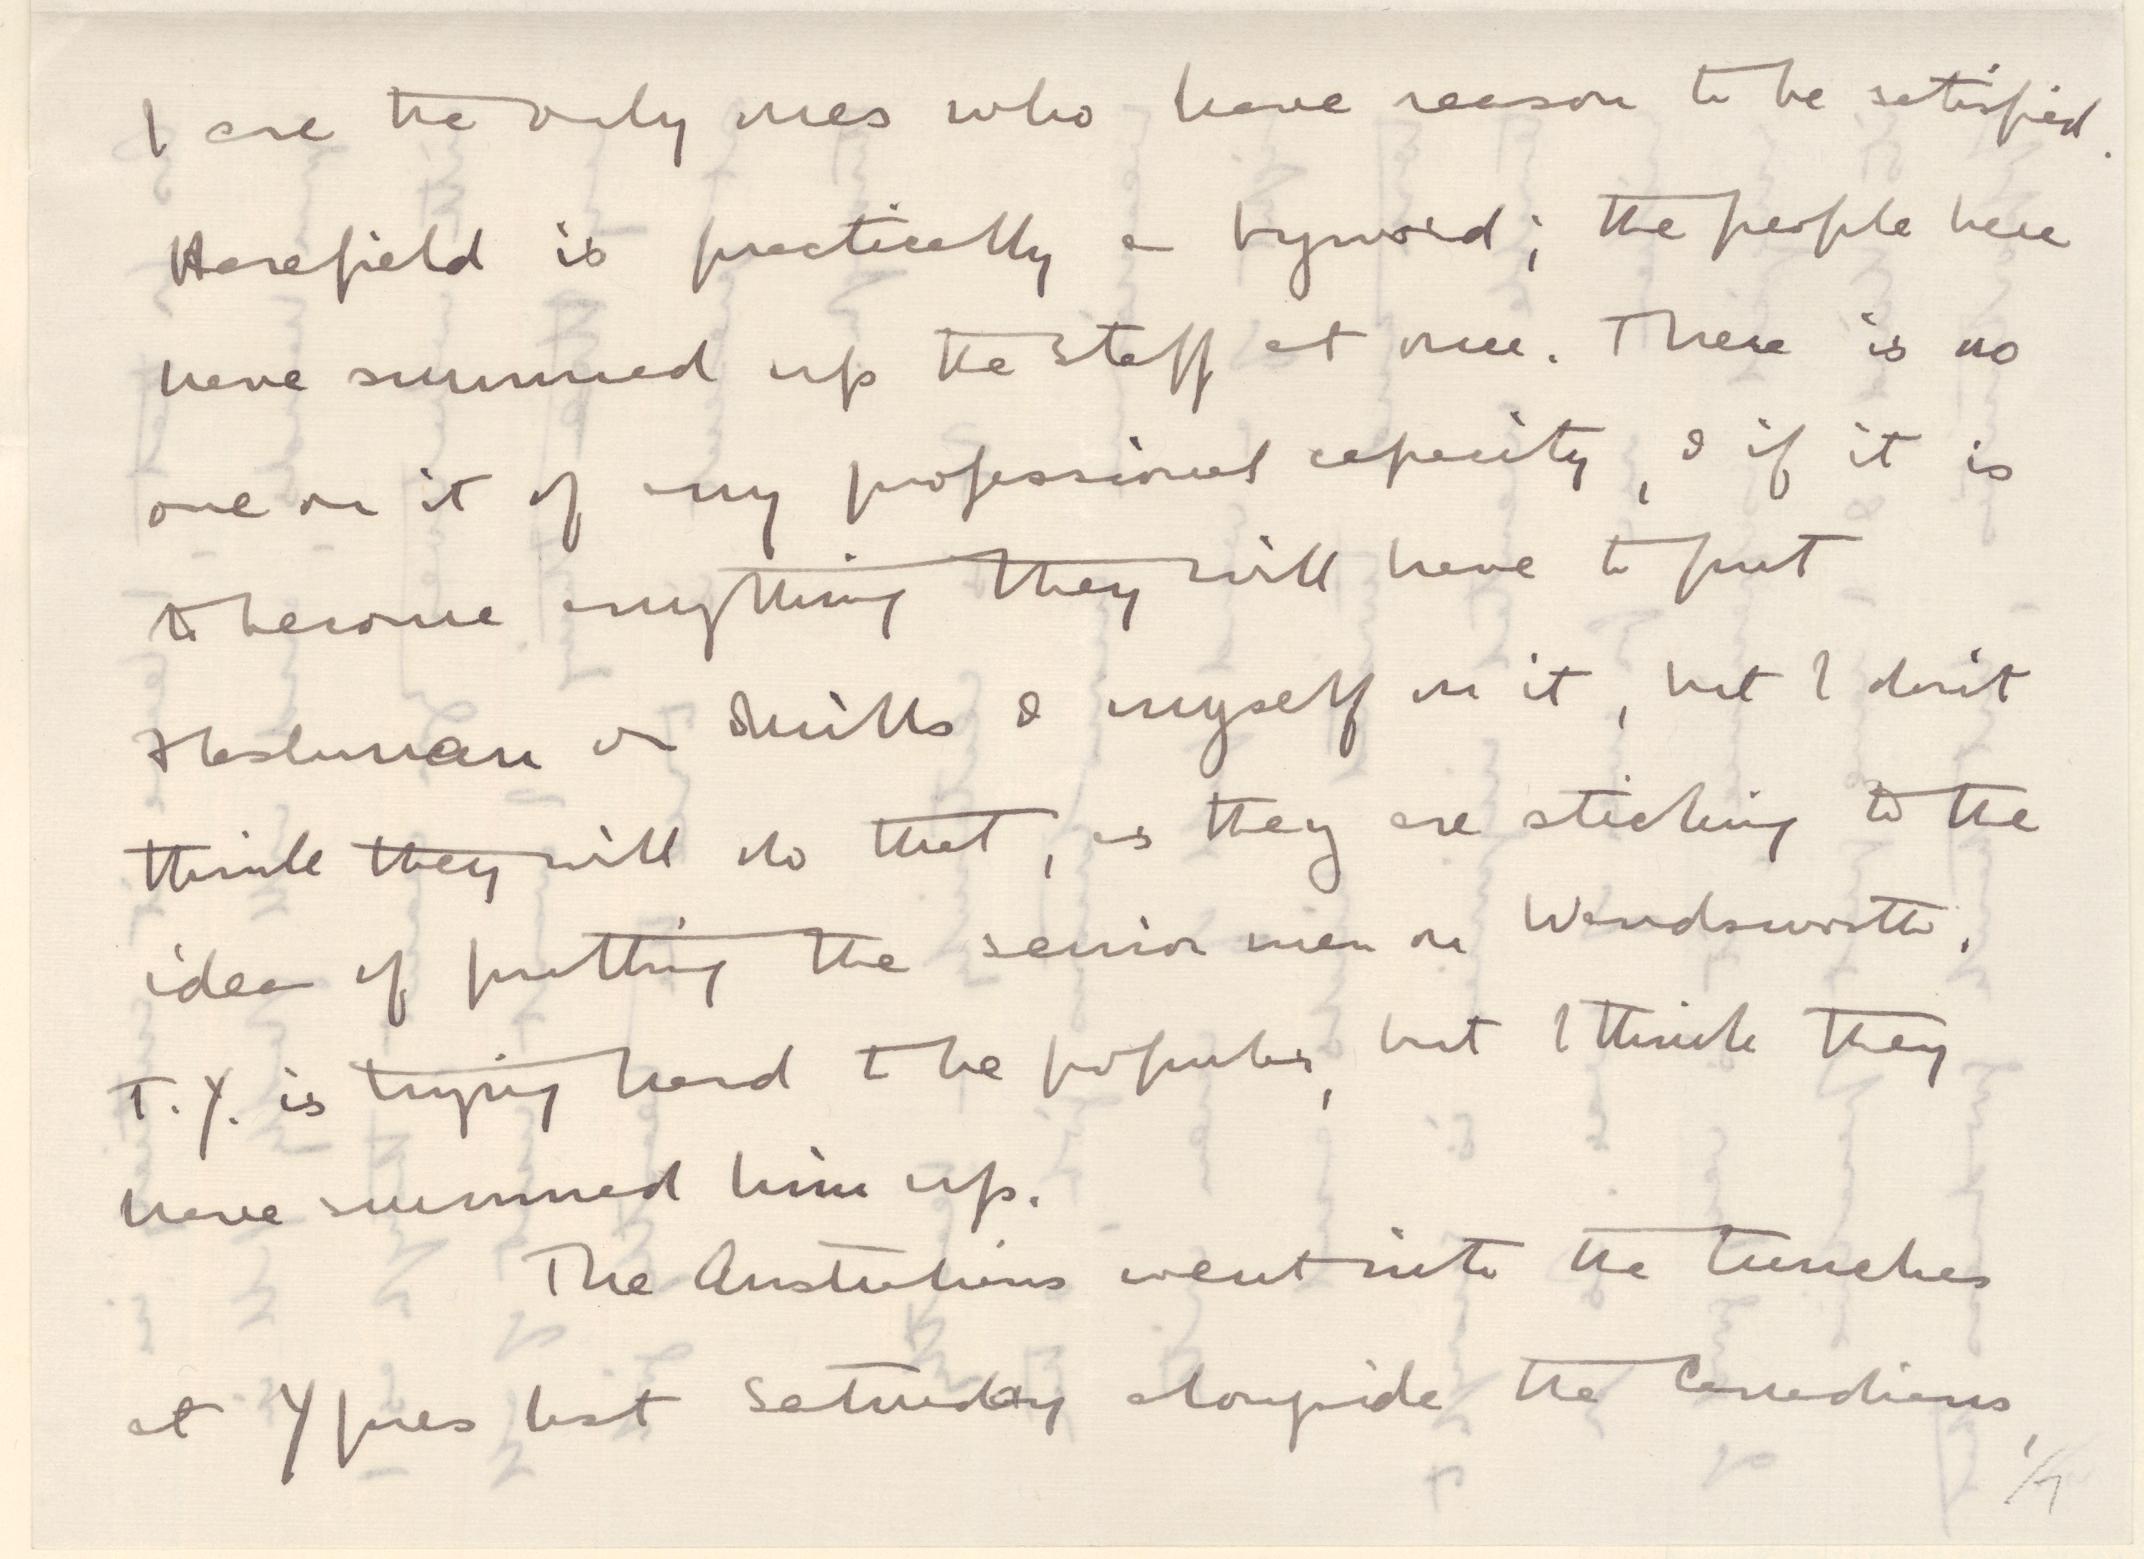 I are the only ones who have reason to be satisfied.
Harefield is practically a byword; the people here
have summed up the staff at once. There is no
one on it of any professional capacity, & if it is
to become anything they will have to put
or & myself on it, but I don't
think they will do that, as they are sticking to the
idea of putting the senior men on Wandsworth.
T.Y. is trying hard to be popular, but I think they
have summed him up.
The Australians went into the trenches
at Ypres last Saturday alongside the Canadians,
1/7